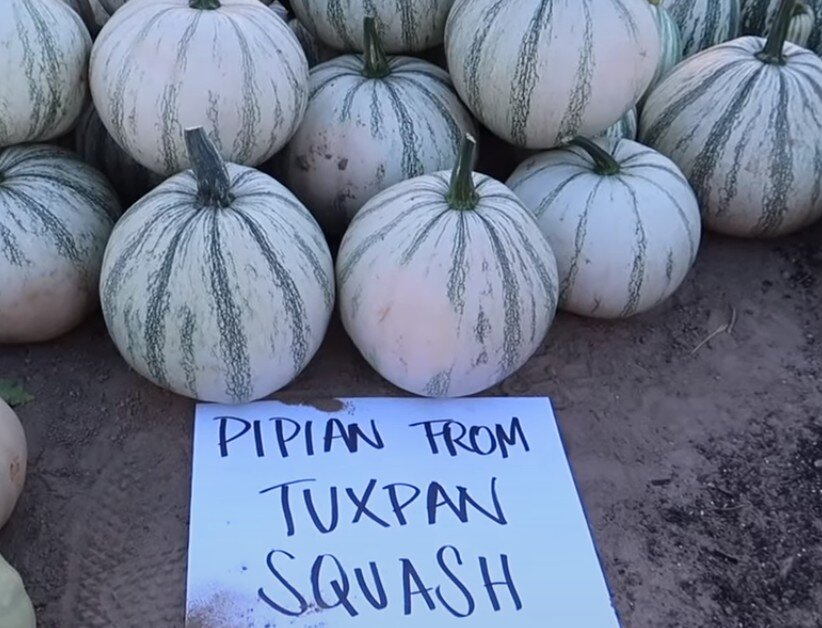 PIPIAN FROM
TUXPAN
SQUASH